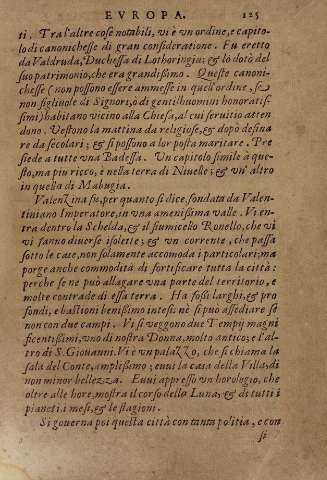 EVROPA. 125
ti. Tra l'altre cose notabili, vi è vn ordine, e capito-
lo di canonichesse di gran consideratione. Fu eretto
da Valdruda, Duchessa di Lothoringia; & lo dotò del
suo patrimonio, che era grandissimo. Queste canoni-
chesse (non possono essere ammesse in quell'ordine, se
non figliuole di Signori, o di gentilhuomini honoratis-
simi) habitano vicino alla Chiesa, al cui seruitio atten
dono. Vestono la mattina da religiose, & dopò desina
re da secolari; & si possono a lor posta maritare. Pre
siede a tutte vna Badessa. Vn capitolo simile à que-
sto, ma piu ricco, è nella terra di Niuelle; & vn' altro
in quella di Mabugia.
Valenzina fu, per quanto si dice, fondata da Valen-
tiniano Imperatore, in vna amenissima valle. Vi en-
tra dentro la Schelda, & il fiumicello Ronello, che vi
vi fanno diuerse isolette; & vn corrente, che passa
sotto le case, non solamente accomoda i particolari; ma
porge anche commodità di fortificare tutta la città:
perche se ne può allagare vna parte del territorio, e
molte contrade di essa terra. Ha fossi larghi, & pro
fondi, e bastioni benissimo intesi: nè si può assediare se
non con due campi. Vi si veggono due Tempij magni
ficentissimi, vno di nostra Donna, molto antico; e l'al-
tro di S. Giouanni. Vi è vn palazzo, che si chiama la
sala del Conte, amplissimo; euui la casa della Villa, di
non minor bellezza. Euui appresso vn horologio, che
oltre alle hore, mostra il corso della Luna, & di tutti i
pianeti a mesi, & le stagioni.
Si gouerna poi questa città con tanta politia, e con
si